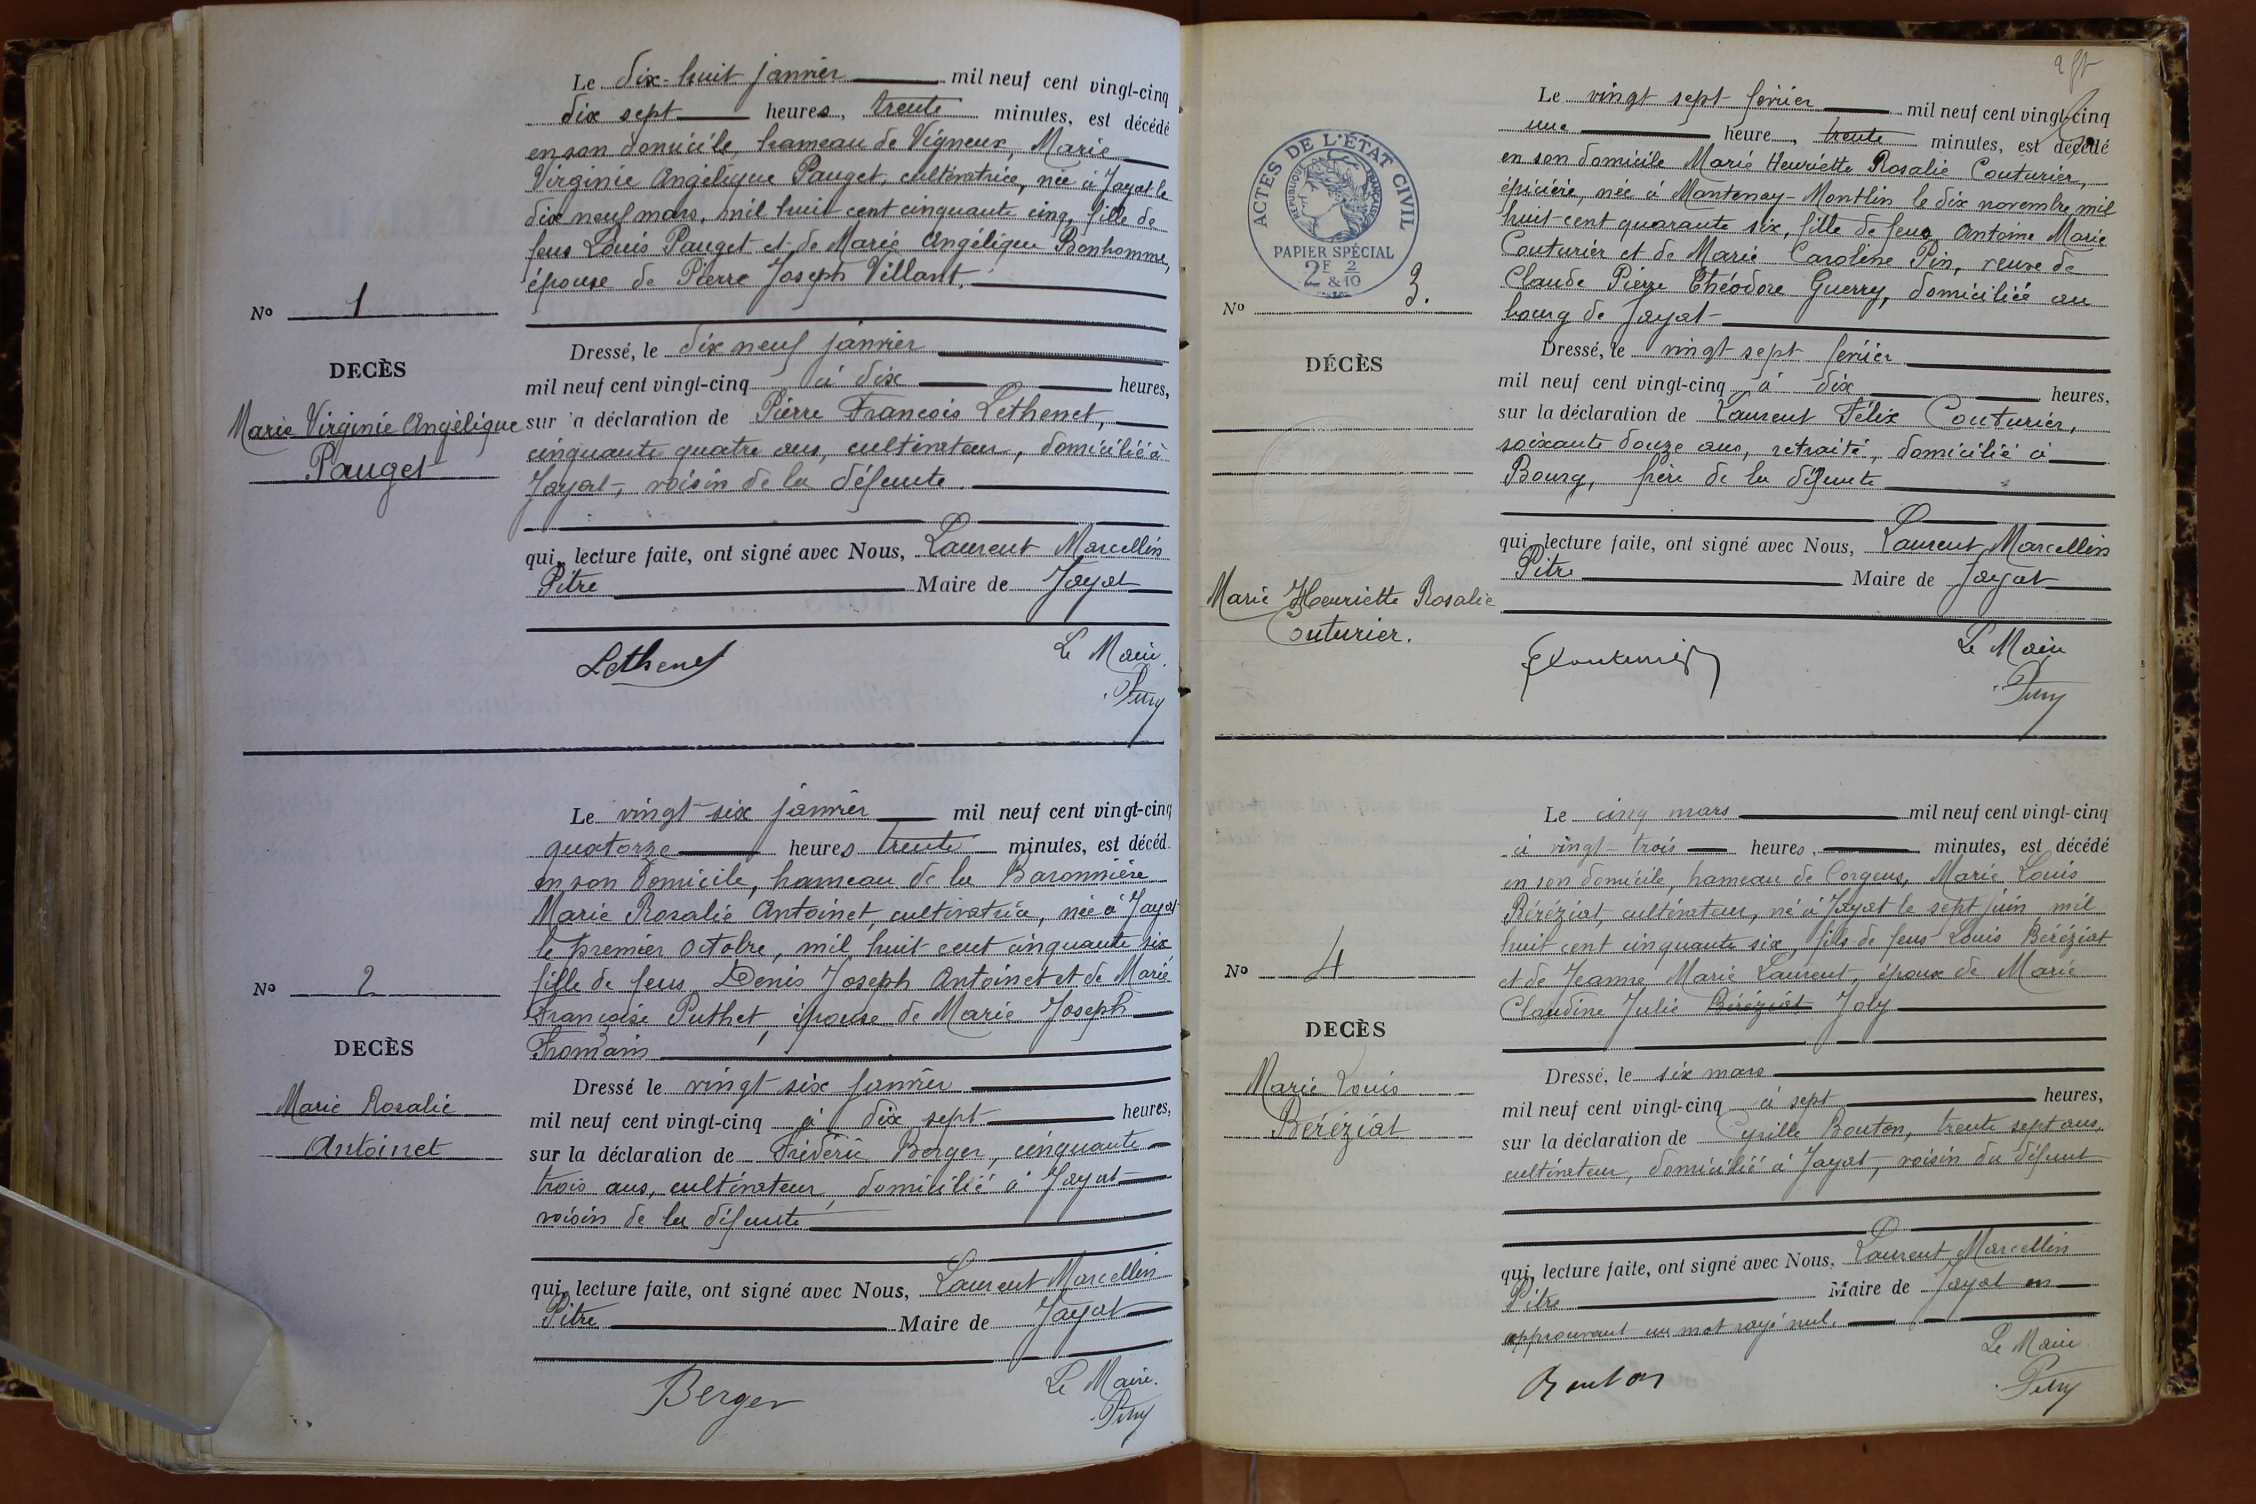 Le dix-huit janvier mil neuf cent vingt-cinq
dix sept heures, trente minutes, est décédé
en son domicile, hameau de Vigneux, Marie
Virginie Angélique Pauget, cultivatrice, née à Jayat le
dix neuf mars, mil huit cent cinquante cinq, fille de
feus Louis Pauget et de Marie Angélique Bonhomme,
épouse de Pierre Joseph Villant.
No 1
Dressé, le dix neuf janvier
DECÈS
mil neuf cent vingt-cinq à dix heures,
Marie Virginie Angélique
Pauget
sur a déclaration de Pierre François Lethenet,
cinquante quatre ans, cultivateur, domicilié à
Jayat, voisin de la défunte.
qui, lecture faite, ont signé avec Nous, Laurent Marcellin
Pitre Maire de Jayat
Lethenet
Le Maire
Pitre
Le vingt-six janvier mil neuf cent vingt-cinq
quatorze heures trente minutes, est décéd
en son domicile, hameau de la Baronnière
Marie Rosalie Antoinet, cultivatrice, née à Jayat
le premier octobre, mil huit cent cinquante six
fille de feus Denis Joseph Antoinet et de Marie
Françoise Puthet, épouse de Marie Joseph
Fromain
No 2
DECÈS
Marie Rosalie
Antoinet
Dressé le vingt six janvier
mil neuf cent vingt-cinq à dix sept heures,
sur la déclaration de Frédéric Berger, cinquante
trois ans, cultivateur, domicilié à Jayat
voisin de la défunte
qui, lecture faite, ont signé avec Nous, Laurent Marcellin
Pitre Maire de Jayat
Berger
Le Maire.
Pitre
ACTES DE L'ÉTAT CIVIL
RÉPUBLIQUE FRANÇAISE
PAPIER SPÉCIAL
2F 2
& 10
Le vingt sept février mil neuf cent vingt-cinq
une heure, trente minutes, est décédé
en son domicile Marie Henriette Rosalie Couturier,
épicière, née à Mantenay-Montlin le dix novembre mil
huit cent quarante six, fille de feus Antoine Marie
Couturier et de Marie Caroline Pin, veuve de
Claude Pierre Théodore Guerry, domiciliée au
bourg de Jayat
No 3.
DÉCÈS
Dressé, le vingt sept février
mil neuf cent vingt-cinq à dix heures,
sur la déclaration de Laurent Félix Couturier,
soixante douze ans, retraité, domicilié à
Bourg, frère de la défunte
qui, lecture faite, ont signé avec Nous, Laurent Marcellin
Pitre Maire de Jayat
Marie Henriette Rosalie
Couturier.
Couturier
Le Maire
Pitre
Le cinq mars mil neuf cent vingt-cinq
à vingt-trois heures, minutes, est décédé
en son domicile, hameau de Corgeus, Marie Louis
Béréziat, cultivateur, né à Jayat le sept juin mil
huit cent cinquante six, fils de feus Louis Béréziat
et de Jeanne Marie Laurent, époux de Marie
Claudine Julie Béréziat Joly
No 4
DECÈS
Marie Louis
Béréziat
Dressé, le six mars
mil neuf cent vingt-cinq à sept heures,
sur la déclaration de Cyrille Bouton, trente sept ans,
cultivateur, domicilié à Jayat, voisin du défunt
qui, lecture faite, ont signé avec Nous, Laurent Marcellin
Pitre Maire de Jayat en
approuvant un mot rayé nul.
Bouton
Le Maire
Pitre